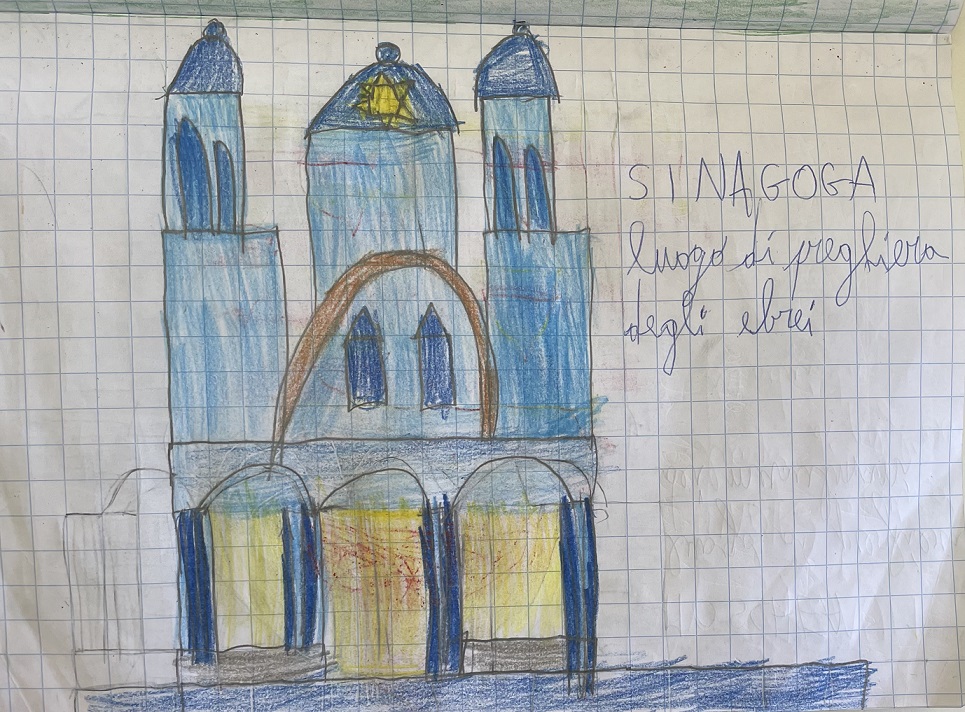 SINAGOGA
luogo di preghiera
degli ebrei